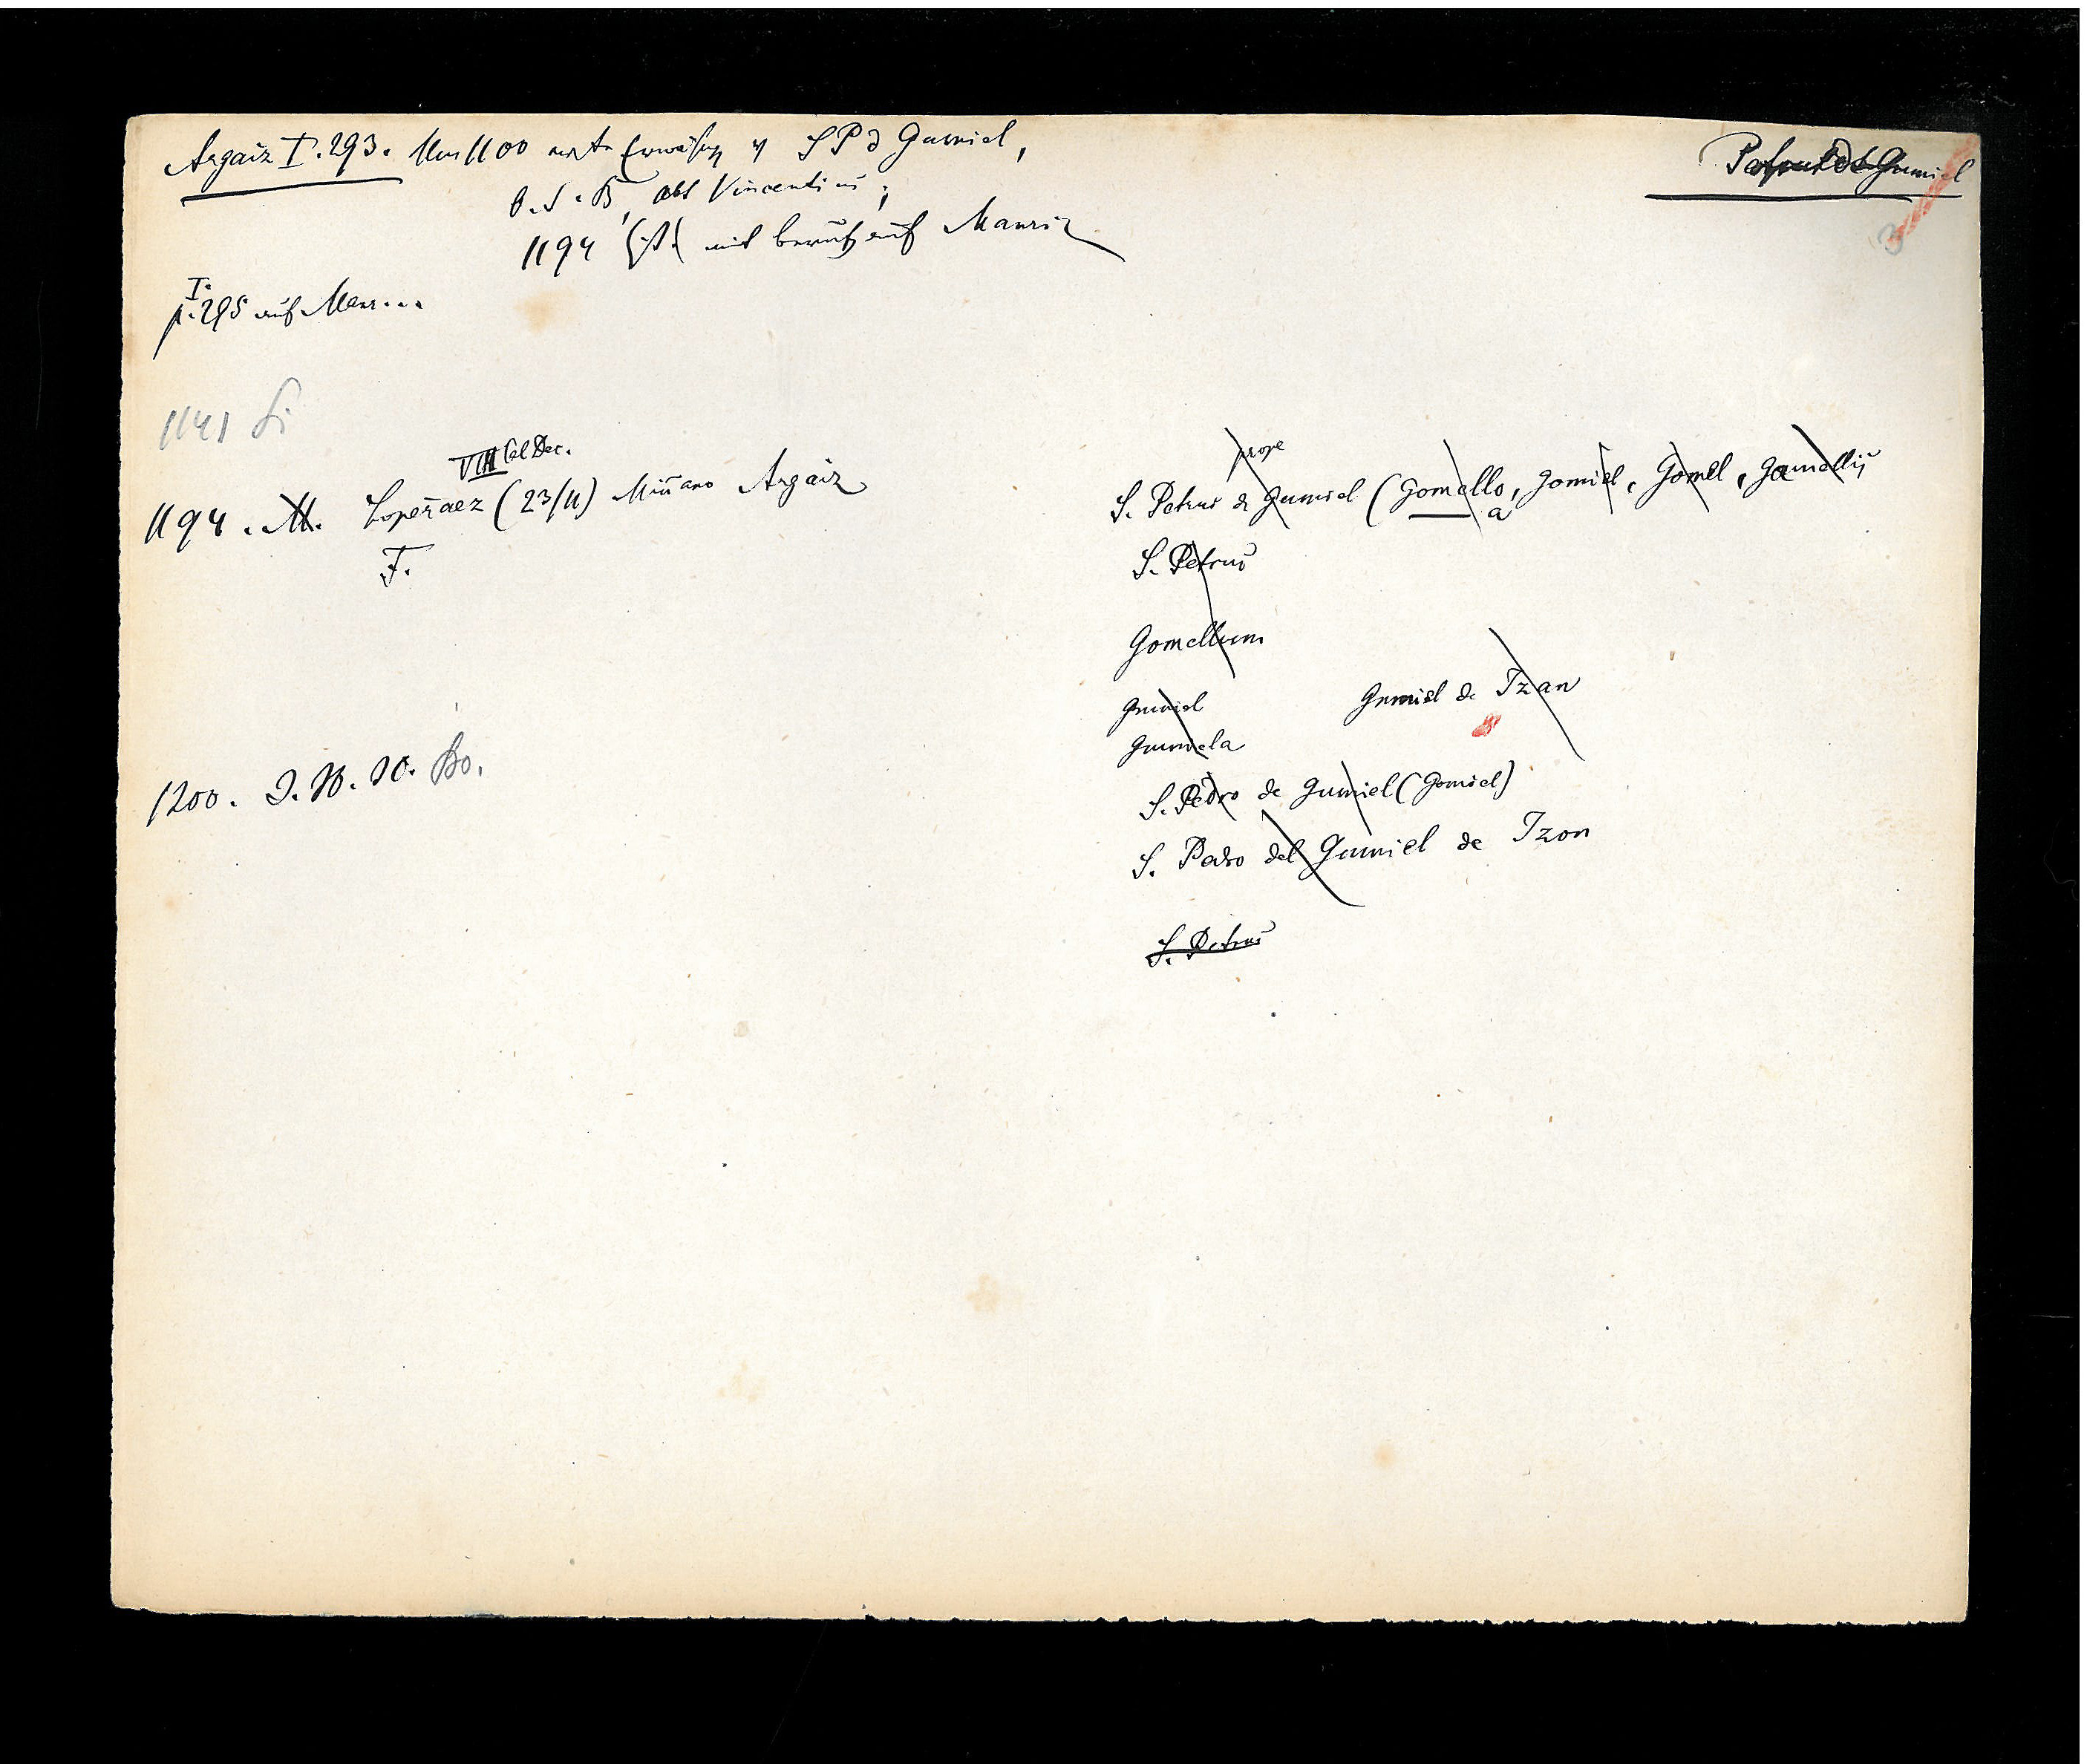 Argaiz I. 293. Um 1100 erste Erwähng v S P d Gumiel,
Petrus de Gumiel
O. S. B, abt Vincentius;
1194 Cist mit beruf auf Manriz
3
I.
p. 295 auf Manr...
1141 Si
VIII Cal Dec.
1194. M. Loperaez (23/11) Miñano Argaiz
F.
prope
S. Petrus de Gumiel (Gomello, Gomiel, Gomel, Gamellij
a
S. Petrus
Gomellum
Gumiel
Gumiel de Izan
Gumiela
1200. J. B. W. Bo.
S. Pedro de Gumiel (Gomiel)
S. Pedro del Gumiel de Izon
S. Petrus